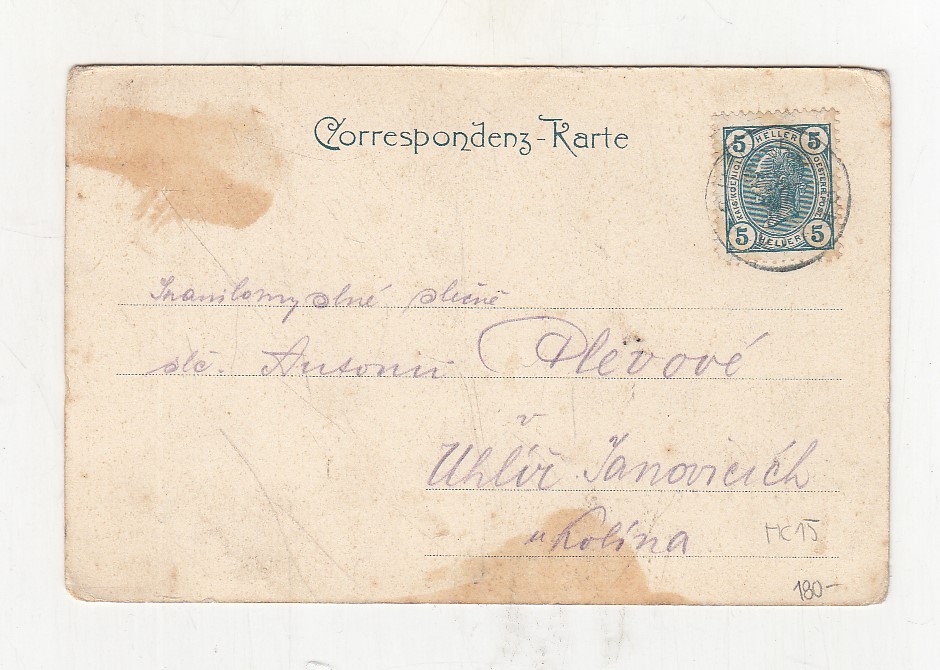 Correspondenz-Karte
5 HELLER 5
KAIS. KOENIGL. OESTERR. POST
5 HELLER 5
slečně
slč. Antonii Plevové
v
Uhlíř. Janovicích
u Kolína
MC 15
180-